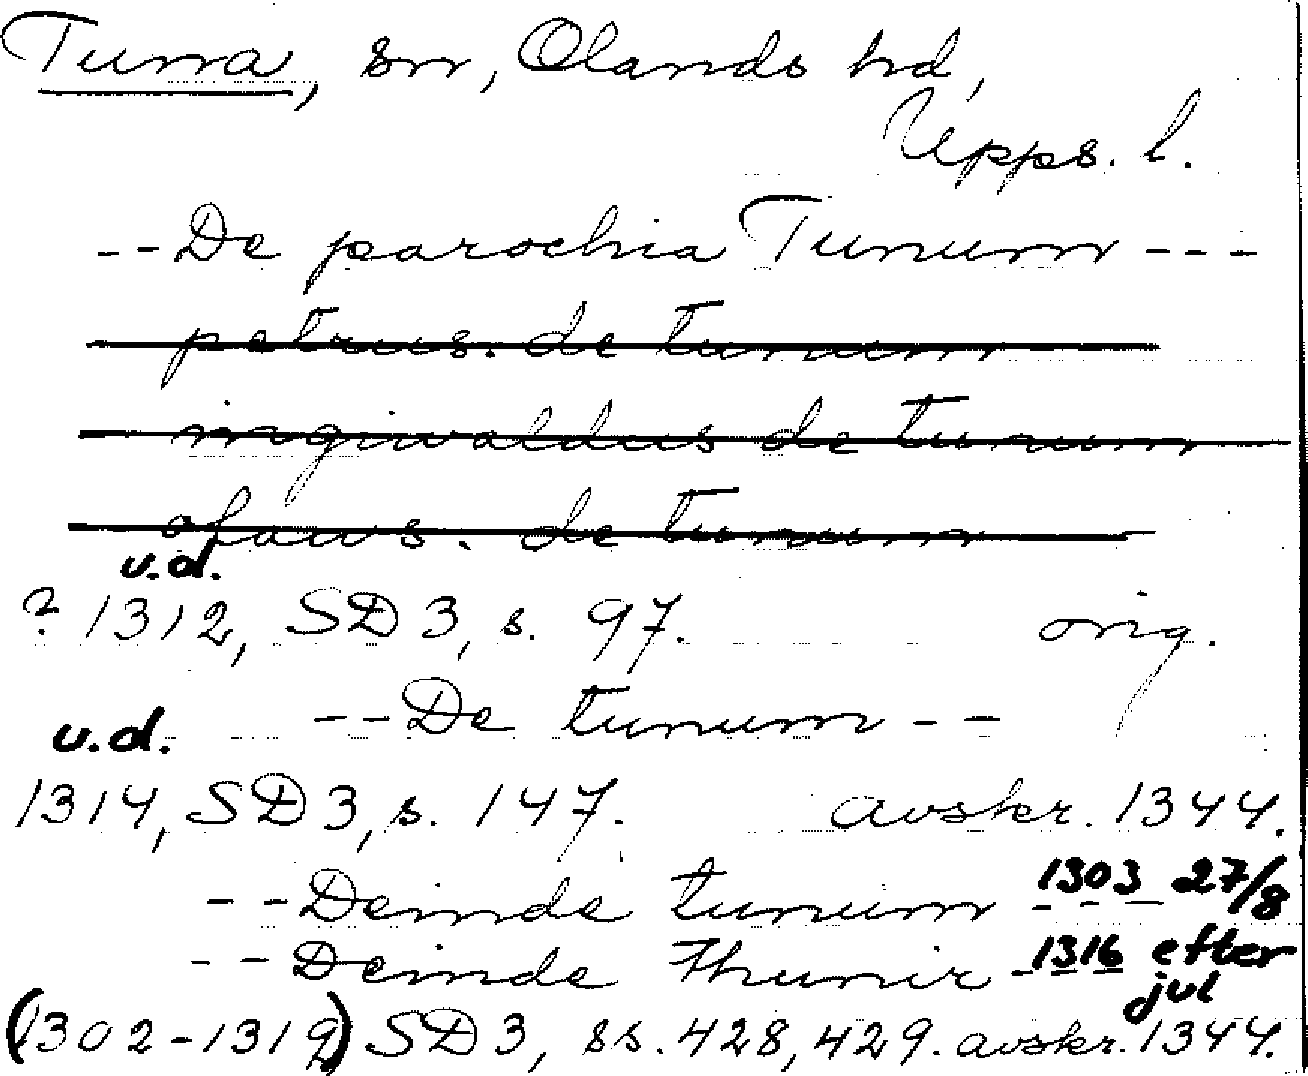 Tuna, sn, Olands hd,
Upps. l.
-- De parochia Tunum ---
petrus. de tunum
ingiwaldus de tunum
olaws. de tunum
u.d.
? 1312, SD 3, s. 97. orig.
-- De tunum --
u.d.
1314, SD 3, s. 147. avskr. 1344.
-- Deinde tunum 1303 27/8
-- Deinde Thunir 1316 efter jul
(1302-1319) SD 3, ss. 428, 429. avskr. 1344.